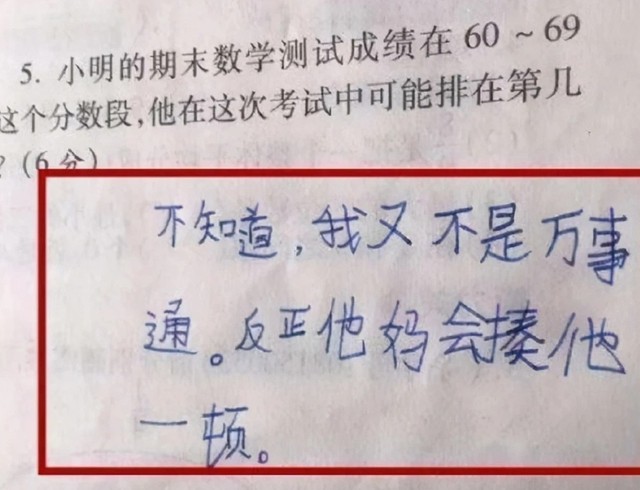 5. 小明的期末数学测试成绩在 60 ~ 69
这个分数段,他在这次考试中可能排在第几
? (6 分)
不知道,我又不是万事
通。反正他妈会揍他
一顿。